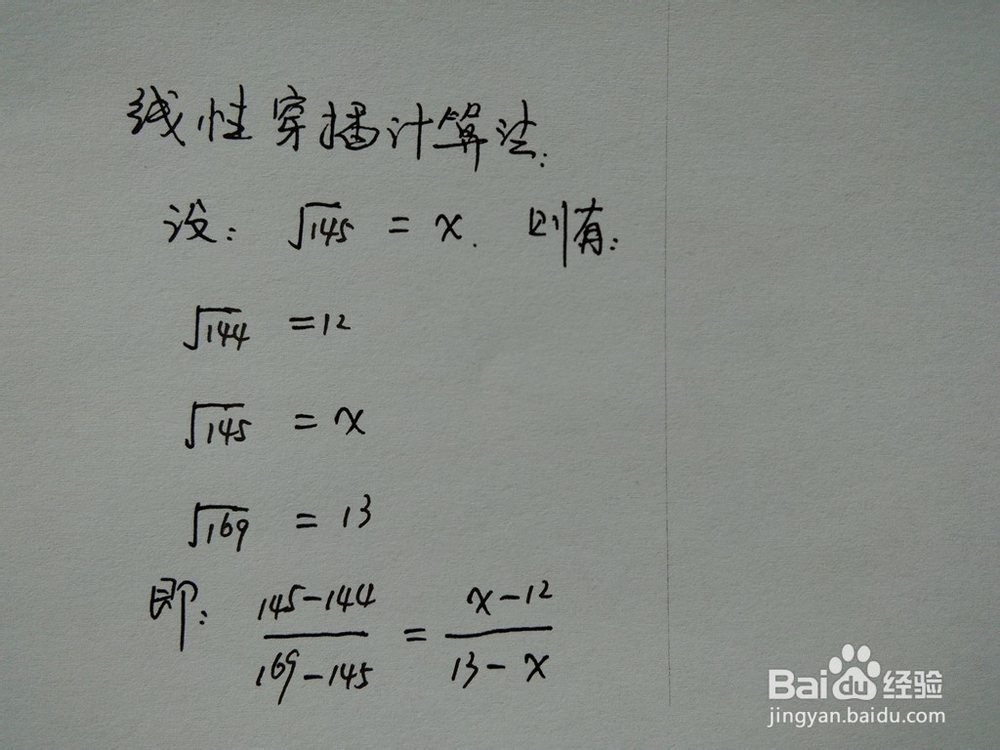 线性穿插计算法:
设: √145 = x. 则有:
√144 = 12
√145 = x
√169 = 13
即: (145-144)/(169-145) = (x-12)/(13-x)
Baidu经验
jingyan.baidu.com